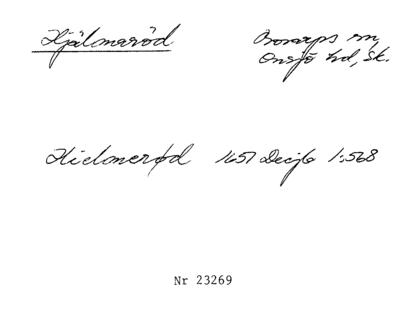 Hjälmaröd
Bosarps sn,
Onsjö hd, Sk.
Hielmerød 1651 DecJb 1:568
Nr 23269